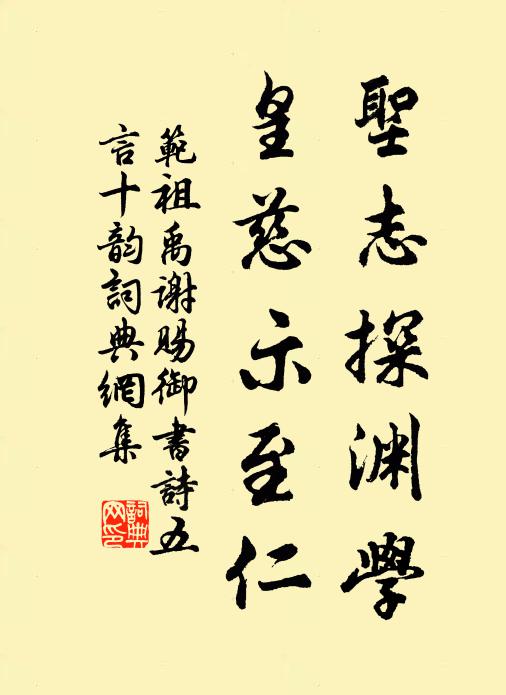 聖志探淵學
皇慈示至仁
範祖禹謝賜御書詩五
言十韵詞典網集
詞典
网印